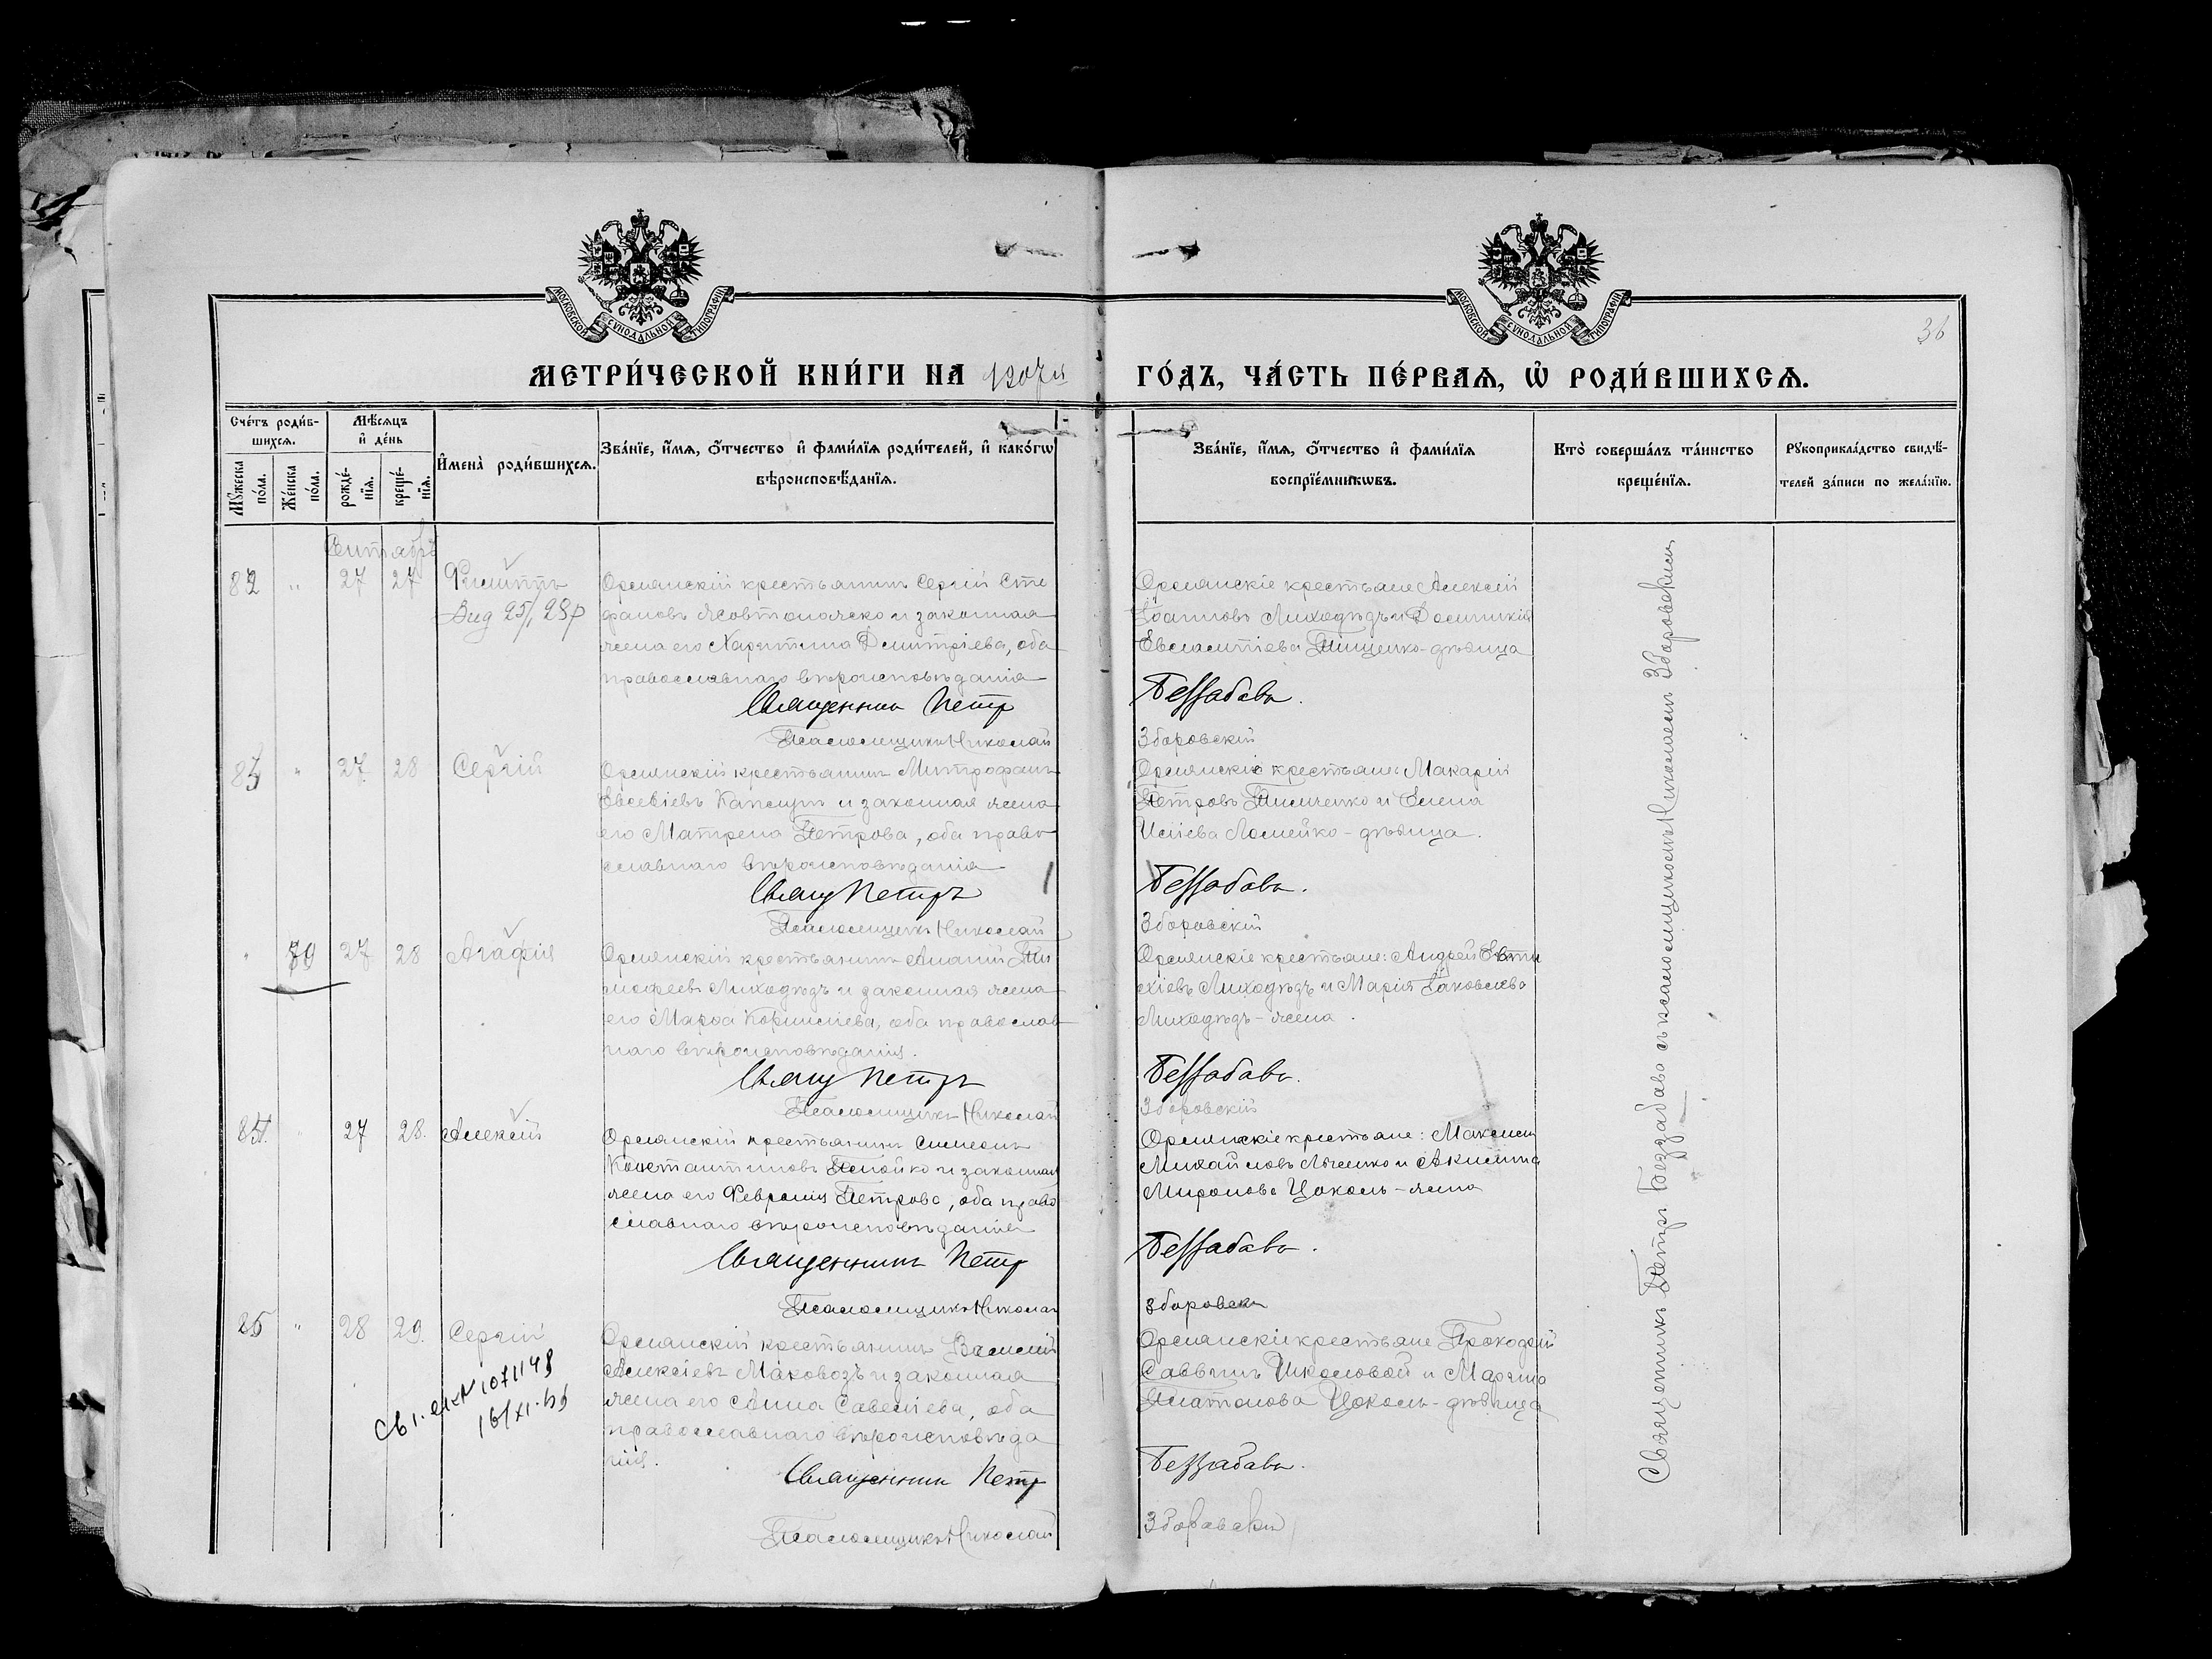 МОСКОВСКОЙ СѴНОДАЛЬНОЙ ТИПОГРАФІИ
МОСКОВСКОЙ СѴНОДАЛЬНОЙ ТИПОГРАФІИ
36
МЕТРИ́ЧЕСКОЙ КНИ́ГИ НА 1907й ГО́ДЪ, ЧА́СТЬ ПЕ́РВАѦ, Ѡ҆ РОДИ́ВШИХСѦ.
Сче́тъ роди́в-
шихсѧ.
Мѣ́сѧцъ
и҆ де́нь
Мꙋ́жеска по́ла.
Же́нска по́ла.
рожде́-нїѧ.
креще́-нїѧ.
И҆мена̀ роди́вшихсѧ.
Зва́нїе, и҆́мѧ, ѻ҆́тчество и҆ фами́лїѧ роди́телей, и҆ како́гѡ
вѣроисповѣ́данїѧ.
Зва́нїе, и҆́мѧ, ѻ҆́тчество и҆ фами́лїѧ
воспрїе́мникѡвъ.
Кто̀ соверша́лъ та́инство
креще́нїѧ.
Рꙋкоприкла́дство свидѣ́-
телей за́писи по жела́нїю.
Сентябрь
82 " 27 27 Филиппъ
Вид 25/, 28р
Орлянскій крестьянинъ Сергій Сте
фановъ и законная
жена его Харитина Димитріева, оба
православнаго вѣроисповѣданія
Священникъ Петр
Псаломщикъ Николай
Орлянскіе крестьяне Алексѣй
Іоанновъ Лиходѣдъ и Домникія
Евлампіева Тищенко-дѣвица
Беззабава.
Зборовскій
83 " 27 28 Сергій
Орлянскій крестьянинъ Митрофанъ
Евсевіевъ и законная жена
его Матрена Петрова, оба право
славнаго вѣроисповѣданія
Свящ Петръ
Псаломщикъ Николай
Орлянскіе крестьяне: Макарій
Петровъ и Елена
Исіева Ломейко-дѣвица.
Беззабава.
Зборовскій
" 79 27 28 Агафія
Орлянскій крестьянинъ Ананій Ти
мофеевъ Лиходѣдъ и законная жена
его Марѳа Корниліева, оба православ
наго вѣроисповѣданія.
Свящ Петръ
Псаломщикъ Николай
Орлянскіе крестьяне: Андрей Евти
хіевъ Лиходѣдъ и Марія Іаковлева
Лиходѣдъ-жена.
Беззабава.
Зборовскій
84. 27 28. Алексій
Орлянскій крестьянинъ Симеонъ
Константиновъ и законная
жена его Феврония Петрова, оба право
славнаго вѣроисповѣданія
Священникъ Петр
Псаломщикъ Николай
Орлянскіе крестьяне: Максимъ
Михайловъ и Акилина
Миронова Цоколь-жена
Беззабава.
Зборовскій
85 " 28 29. Сергій
Св 1. еик N 1071148
16/XI-55
Орлянскій крестьянинъ Василій
Алексіевъ Маковозъ и законная
жена его Анна Савеліева, оба
православнаго вѣроисповѣда
нія.
Священникъ Петр
Псаломщикъ Николай
Орлянскіе крестьяне Прокофій
Саввинъ Школовой и Марина
Платонова Цоколь-дѣвица
Беззабава.
Зборовскій
Священникъ Петръ Беззабава съ псаломщикомъ Николаемъ Зборовскимъ